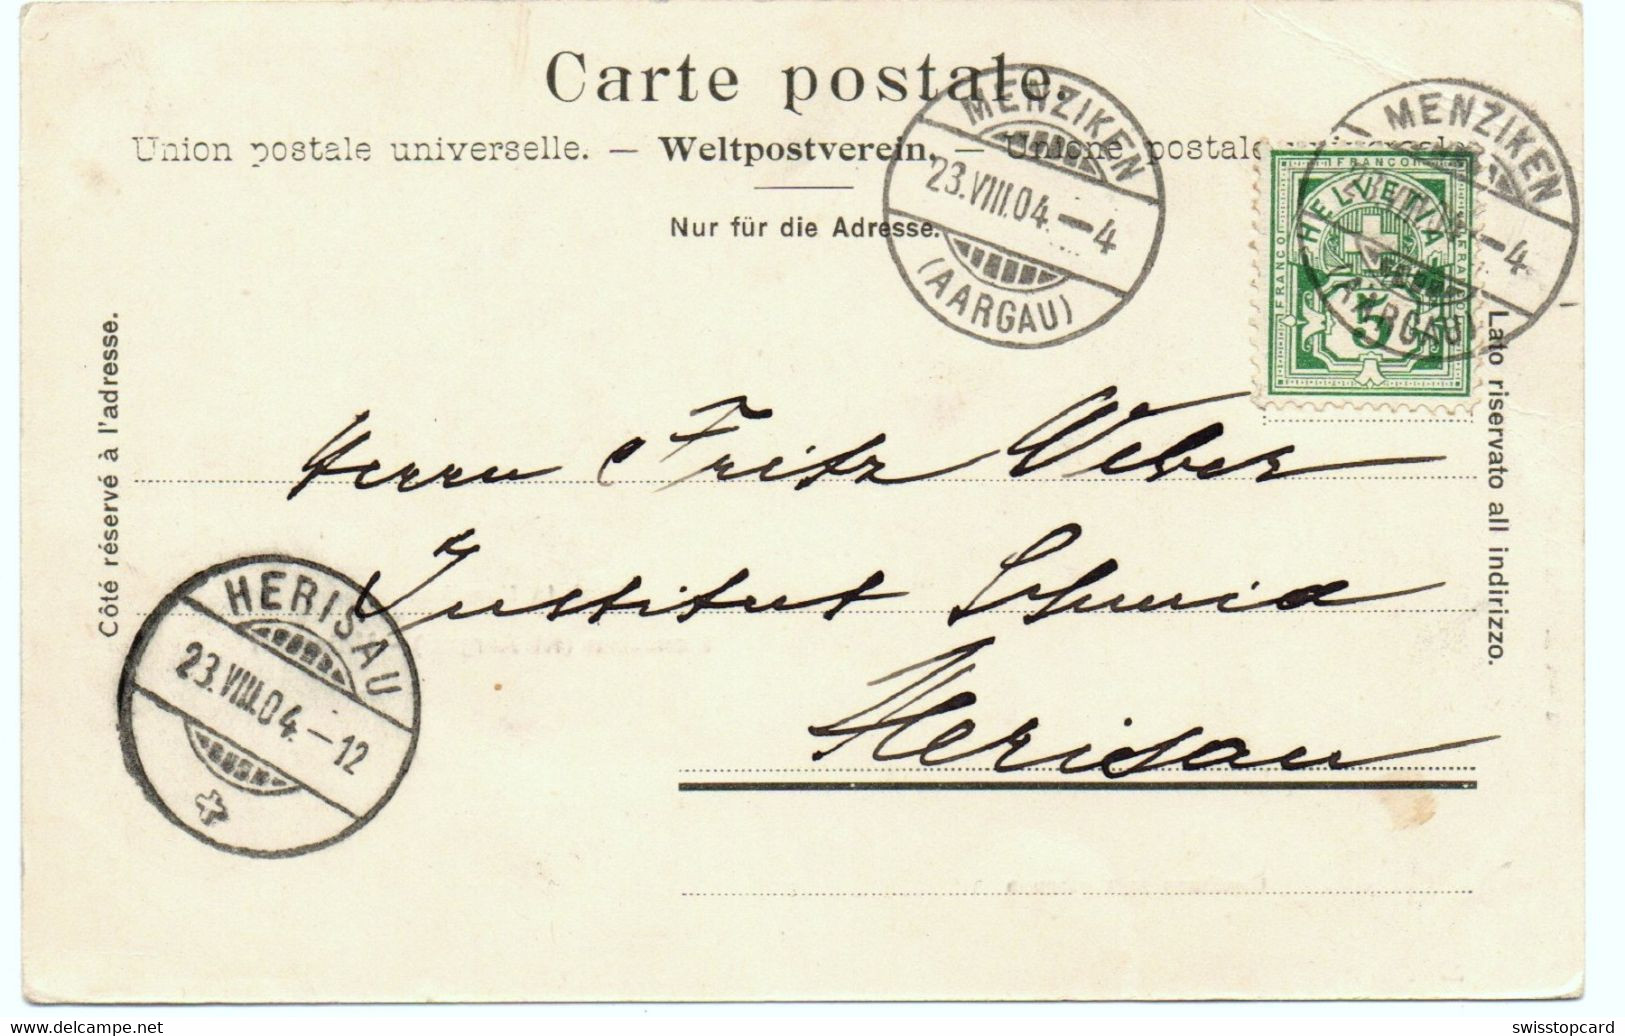 Carte postale.
Union postale universelle. — Weltpostverein. — Unione postale universale.
Nur für die Adresse.
MENZIKEN
23.VIII.04.–4
(AARGAU)
MENZIKEN
–4
(AARGAU)
FRANCO
HELVETIA
FRANCO
FRANCO
5
Côté réservé à l'adresse.
Lato riservato all indirizzo.
Herrn Fritz Weber
Institut Schmid
Herisau
HERISAU
23.VIII.04.–12
swisstopcard